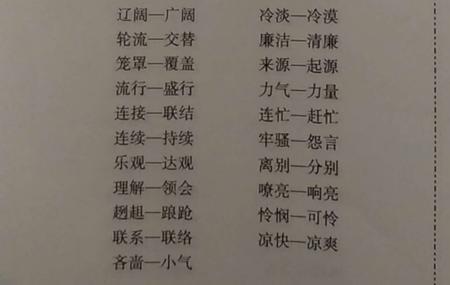 辽阔—广阔
轮流—交替
笼罩—覆盖
流行—盛行
连接—联结
连续—持续
乐观—达观
理解—领会
趔趄—踉跄
联系—联络
吝啬—小气
冷淡—冷漠
廉洁—清廉
来源—起源
力气—力量
连忙—赶忙
牢骚—怨言
离别—分别
嘹亮—响亮
怜悯—可怜
凉快—凉爽